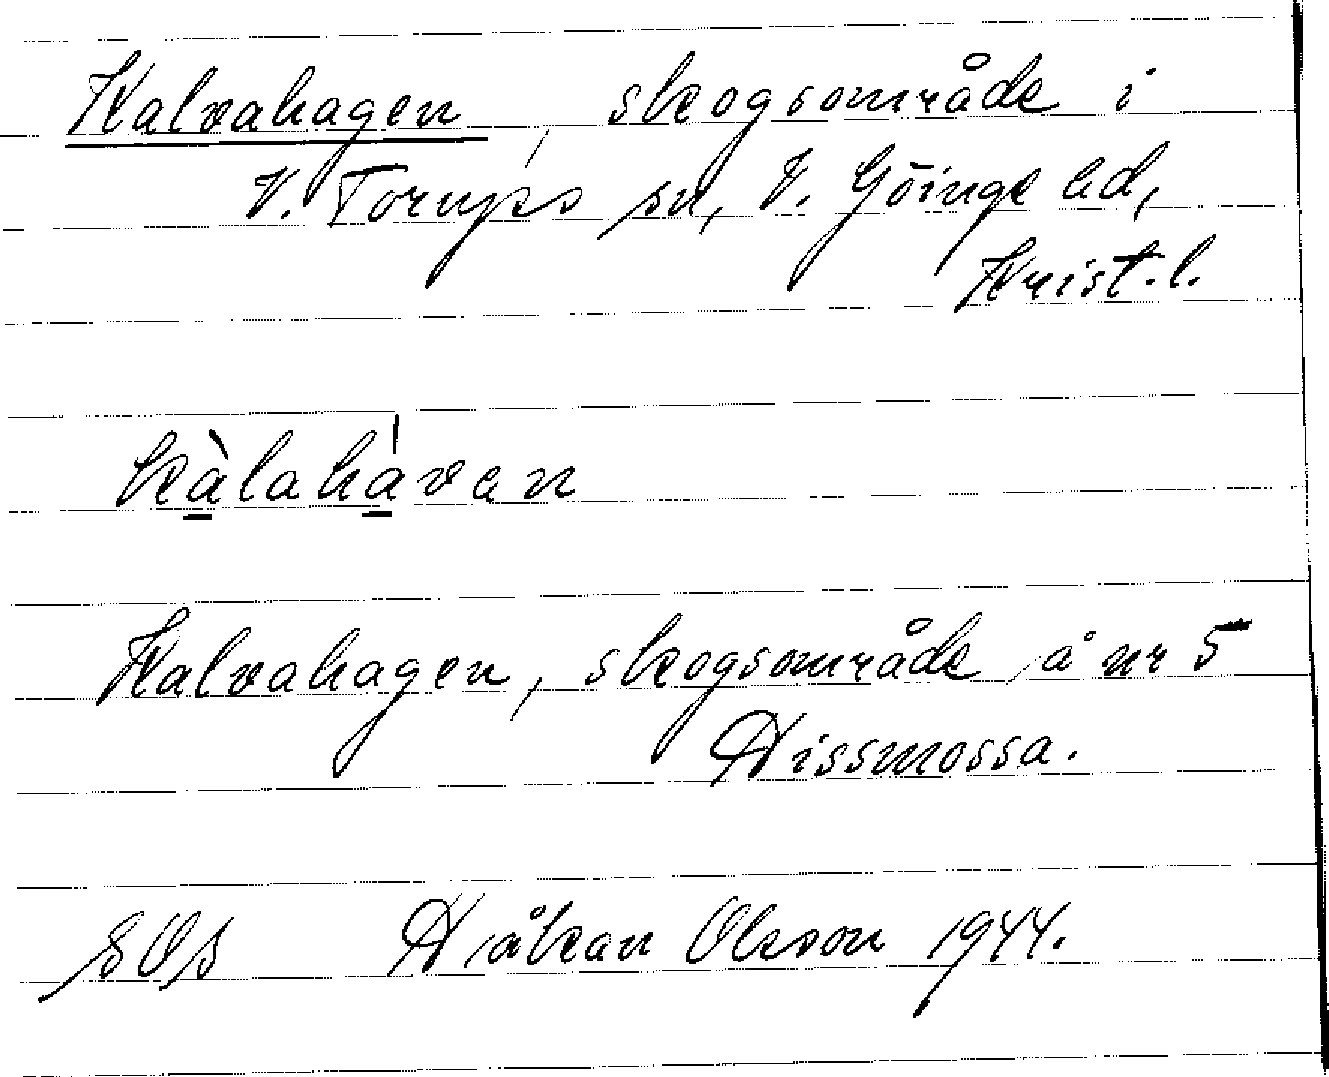 Kalvahagen, skogsområde i
V. Torups sn, V. Göinge hd,
Krist. l.
kàlahávan
Kalvahagen, skogsområde å nr 5
Hissmossa.
SOS Håkan Olsson 1944.